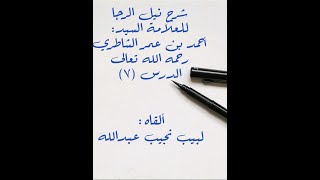 شرح نيل الرجا
للعلامة السيد:
أحمد بن عمر الشاطري
رحمه الله تعالى
الدرس (٧)
ألقاه:
لبيب نجيب عبدالله